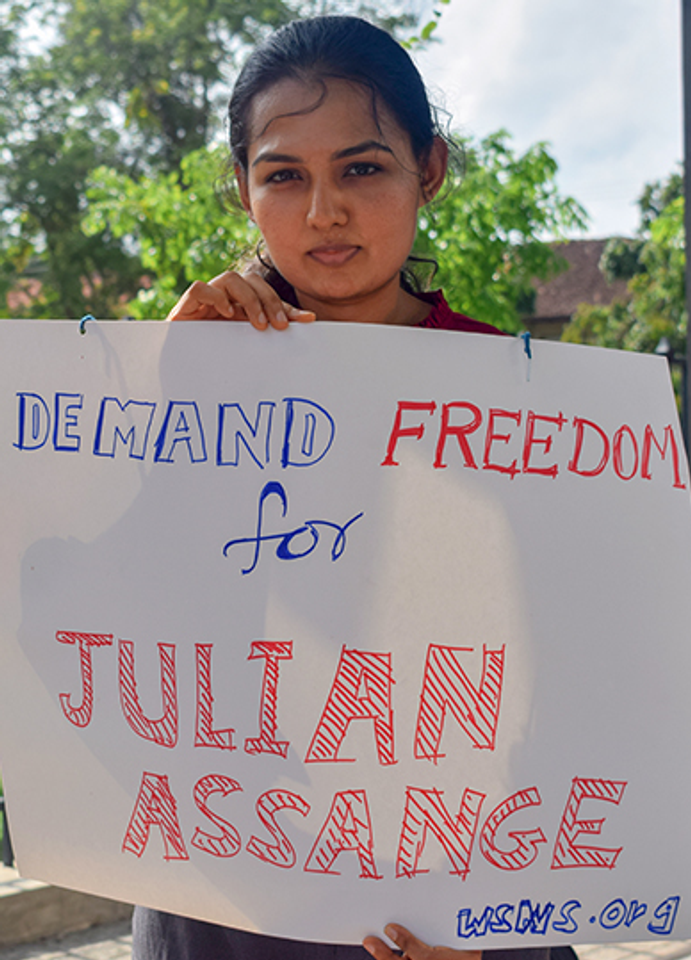 DEMAND FREEDOM
for
JULIAN
ASSANGE
wsws.org